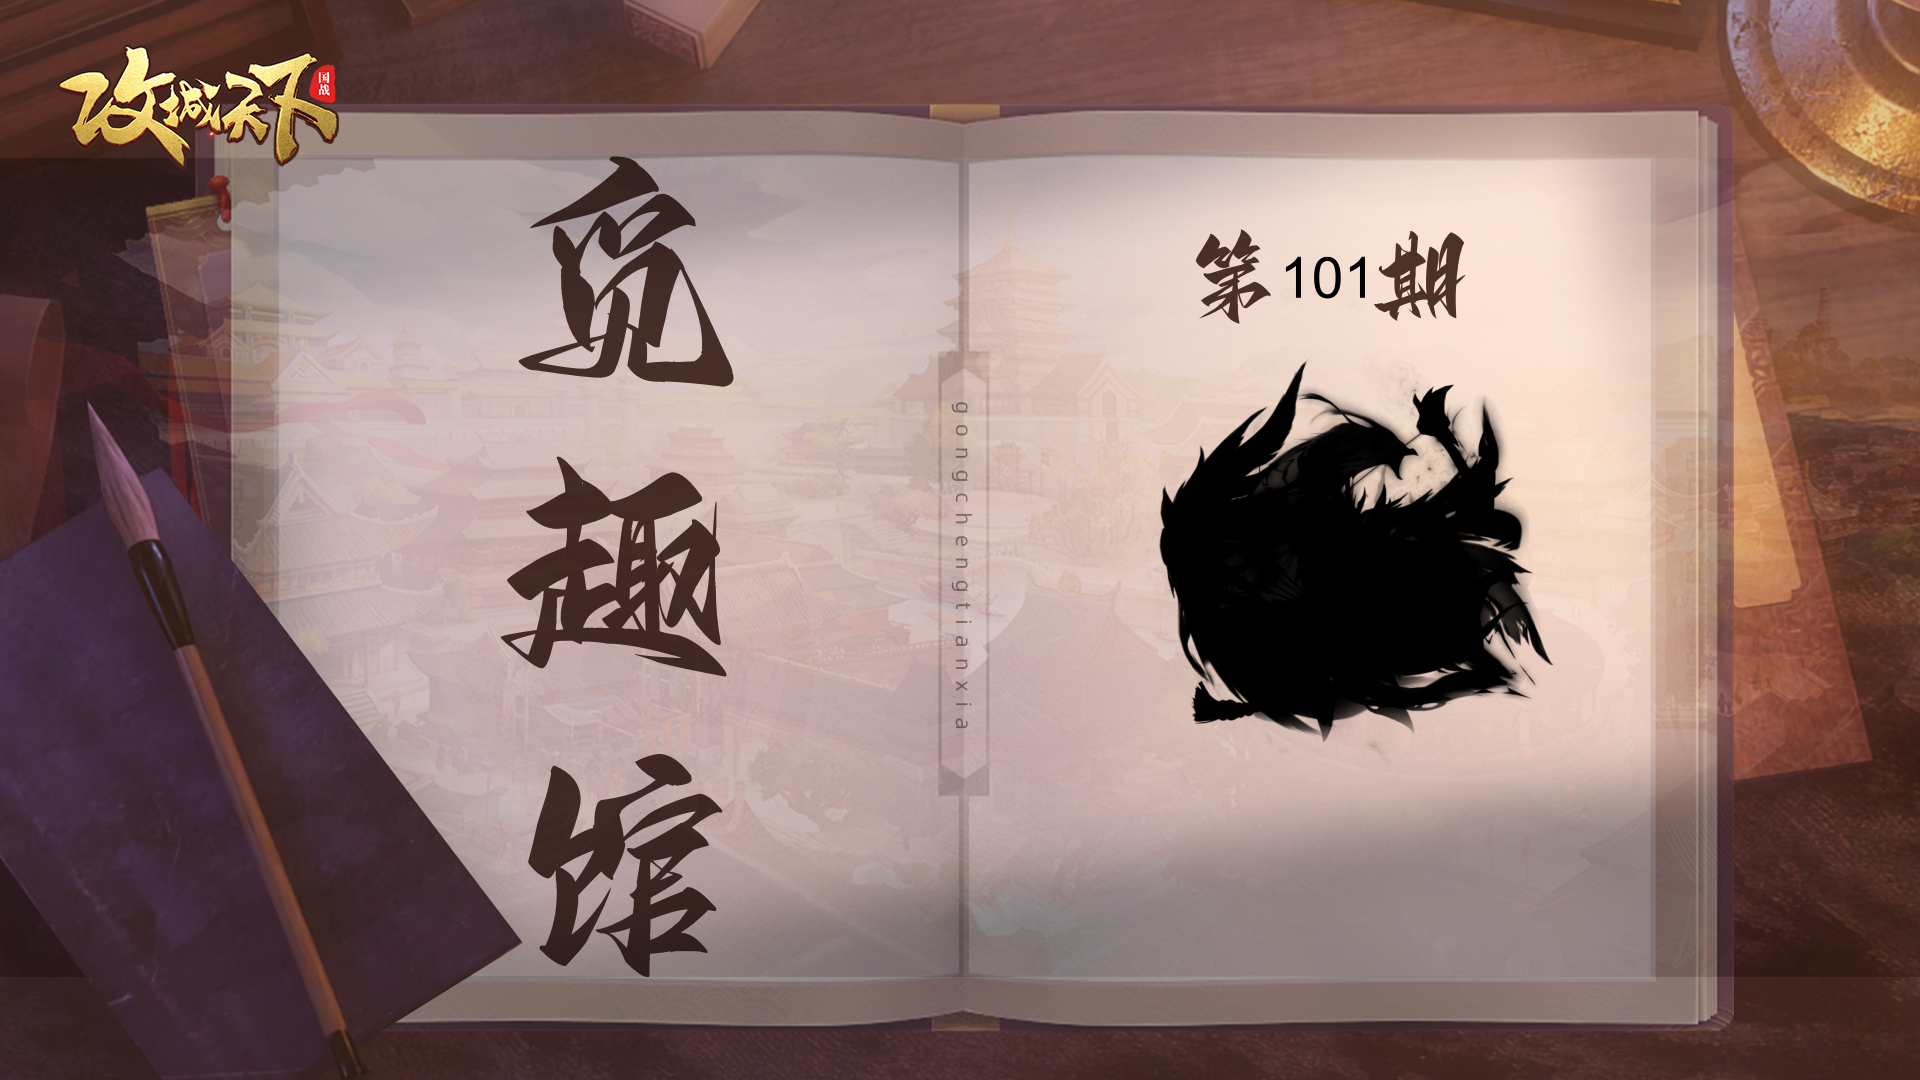 攻城天下
国战
觅趣馆
gongchengtianxia
第101期